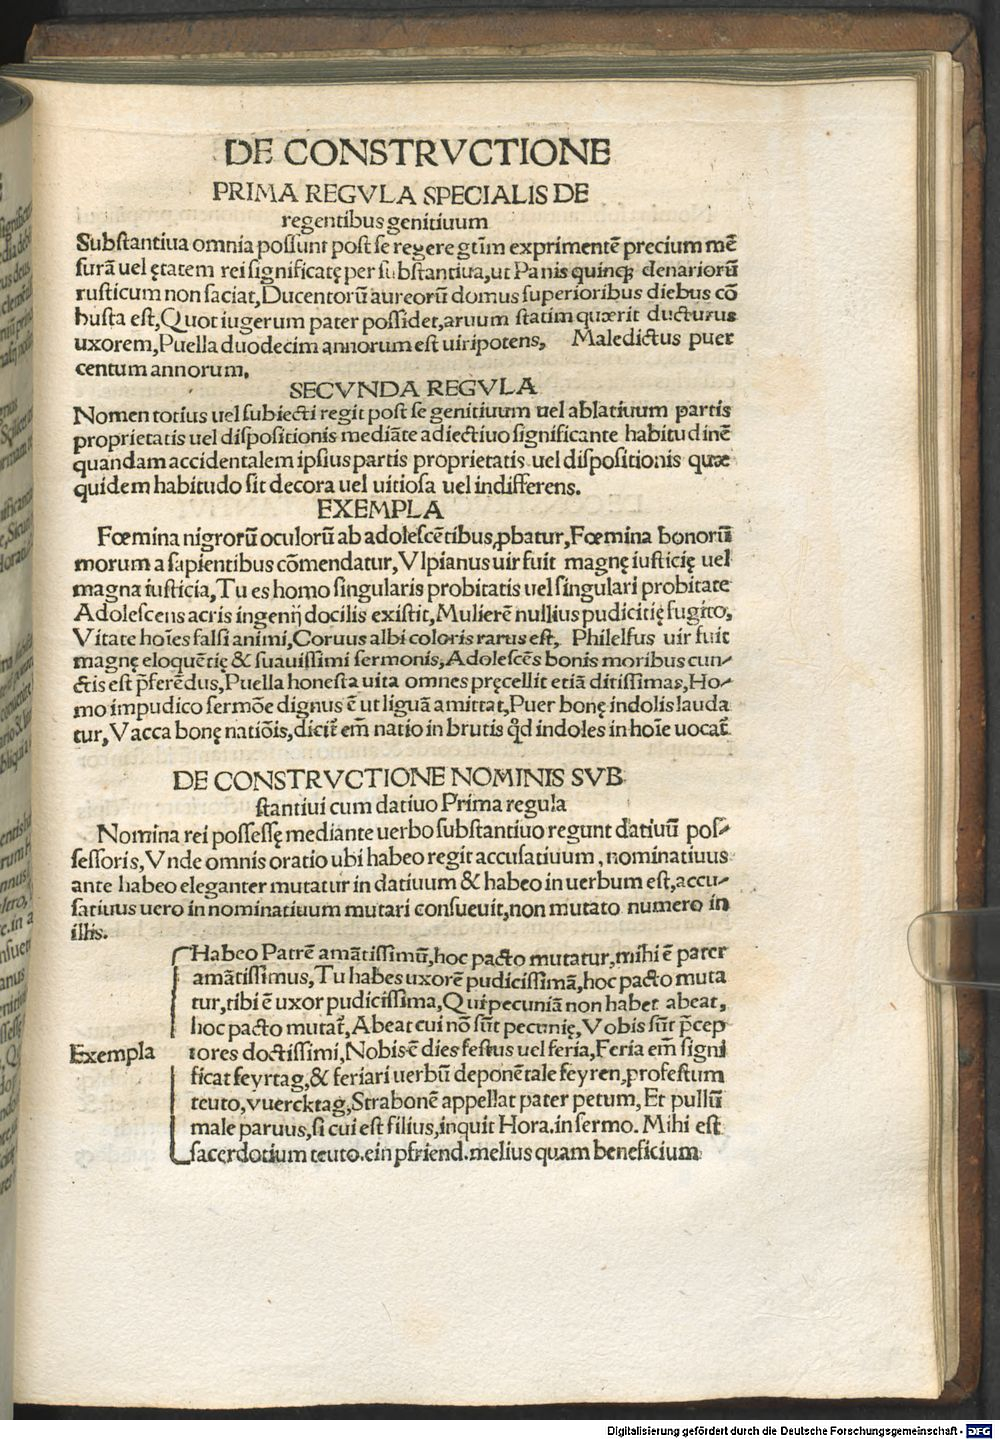 DE CONSTRVCTIONE
PRIMA REGVLA SPECIALIS DE
regentibus genitiuum
Substantiua omnia possunt post se regere gtm̄ exprimentē precium mē
surā uel ętatem rei significatę per substantiua, ut Panis quinqꝫ denariorū
rusticum non saciat, Ducentorū aureorū domus superioribus diebus cō
busta est, Quot iugerum pater possidet, aruum statim quærit ducturus
uxorem, Puella duodecim annorum est uiripotens, Maledictus puer
centum annorum.
SECVNDA REGVLA
Nomen totius uel subiecti regit post se genitiuum uel ablatiuum partis
proprietatis uel dispositionis mediāte adiectiuo significante habitudinē
quandam accidentalem ipsius partis proprietatis uel dispositionis quæ
quidem habitudo sit decora uel uitiosa uel indifferens.
EXEMPLA
Fœmina nigrorū oculorū ab adolescētibus ꝓbatur, Fœmina bonorū
morum a sapientibus cōmendatur, Vlpianus uir fuit magnę iusticię uel
magna iusticia, Tu es homo singularis probitatis uel singulari probitate
Adolescens acris ingenij docilis existit, Mulierē nullius pudicitię fugito,
Vitate hoīes falsi animi, Coruus albi coloris rarus est, Philelfus uir fuit
magnę eloquētię & suauissimi sermonis, Adolescēs bonis moribus cun⸗
ctis est p̄ferēdus, Puella honesta uita omnes pręcellit etiā ditissimas, Ho⸗
mo impudico sermōe dignus ē ut liguā amittat, Puer bonę indolis lauda
tur, Vacca bonę natiōis, dicit̄ em̄ natio in brutis qd̄ indoles in hoīe uocat̄
DE CONSTRVCTIONE NOMINIS SVB
stantiui cum datiuo Prima regula
Nomina rei possessę mediante uerbo substantiuo regunt datiuū pos⸗
sessoris, Vnde omnis oratio ubi habeo regit accusatiuum, nominatiuus
ante habeo eleganter mutatur in datiuum & habeo in uerbum est, accu⸗
satiuus uero in nominatiuum mutari consueuit, non mutato numero in
illis.
Habeo Patrē amātissimū, hoc pacto mutatur, mihi ē pater
amātissimus, Tu habes uxorē pudicissimā, hoc pacto muta
tur, tibi ē uxor pudicissima, Qui pecuniā non habet abeat,
hoc pacto mutat̄, Abeat cui nō sūt pecunię, Vobis sūt p̄cep
Exempla tores doctissimi, Nobis ē dies festus uel feria, Feria em̄ signi
ficat feyrtag, & feriari uerbū deponētale feyren, profestum
teuto, vuercktag, Strabonē appellat pater petum, Et pullū
male paruus, si cui est filius, inquit Hora. in sermo. Mihi est
sacerdotium teuto. ein pfriend. melius quam beneficium
Digitalisierung gefördert durch die Deutsche Forschungsgemeinschaft - DFG